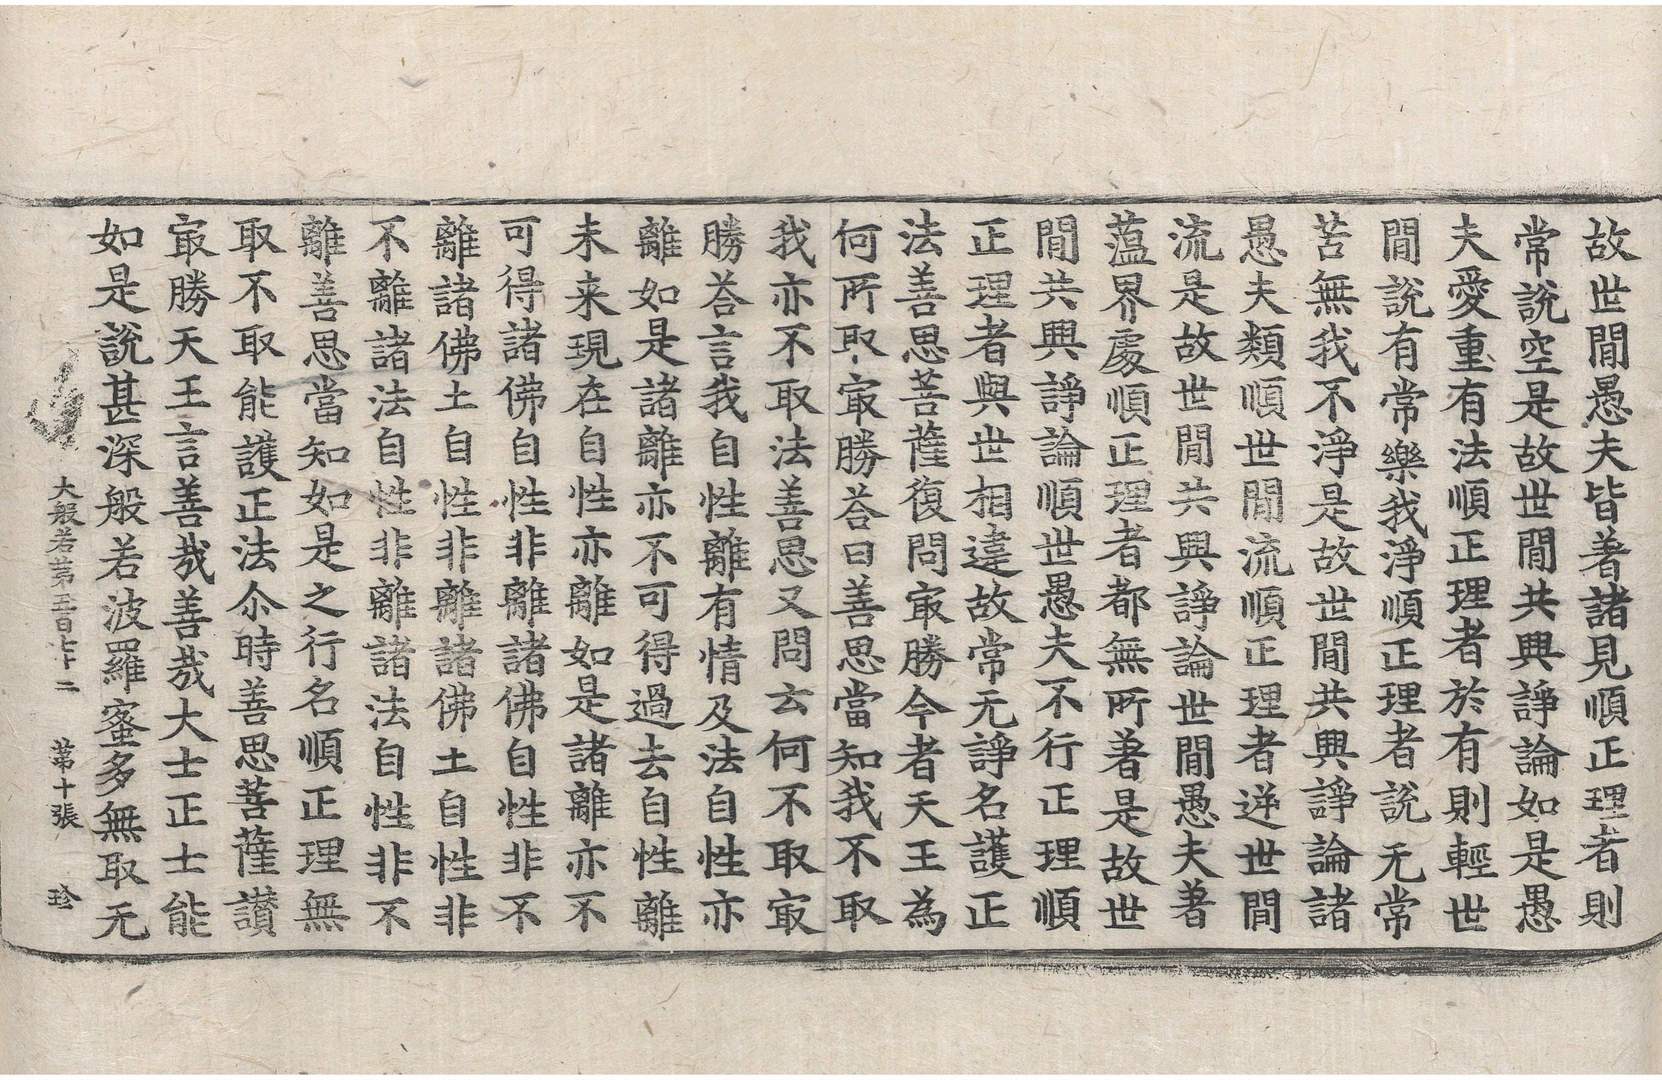 故世間愚夫皆著諸見順正理者則
常說空是故世間共興諍論如是愚
夫愛重有法順正理者於有則輕世
間說有常樂我淨順正理者說无常
苦無我不淨是故世間共興諍論諸
愚夫類順世間流順正理者逆世間
流是故世間共興諍論世間愚夫著
薀界處順正理者都無所著是故世
間共興諍論順世愚夫不行正理順
正理者與世相違故常无諍名護正
法善思菩薩復問㝡勝今者天王為
何所取㝡勝荅曰善思當知我不取
我亦不取法善思又問云何不取㝡
勝荅言我自性離有情及法自性亦
離如是諸離亦不可得過去自性離
未来現在自性亦離如是諸離亦不
可得諸佛自性非離諸佛自性非不
離諸佛土自性非離諸佛土自性非
不離諸法自性非離諸法自性非不
離善思當知如是之行名順正理無
取不取能護正法尒時善思菩薩讃
㝡勝天王言善哉善哉大士正士能
如是說甚深般若波羅蜜多無取无
大般若第五百七十二 第十張 珍